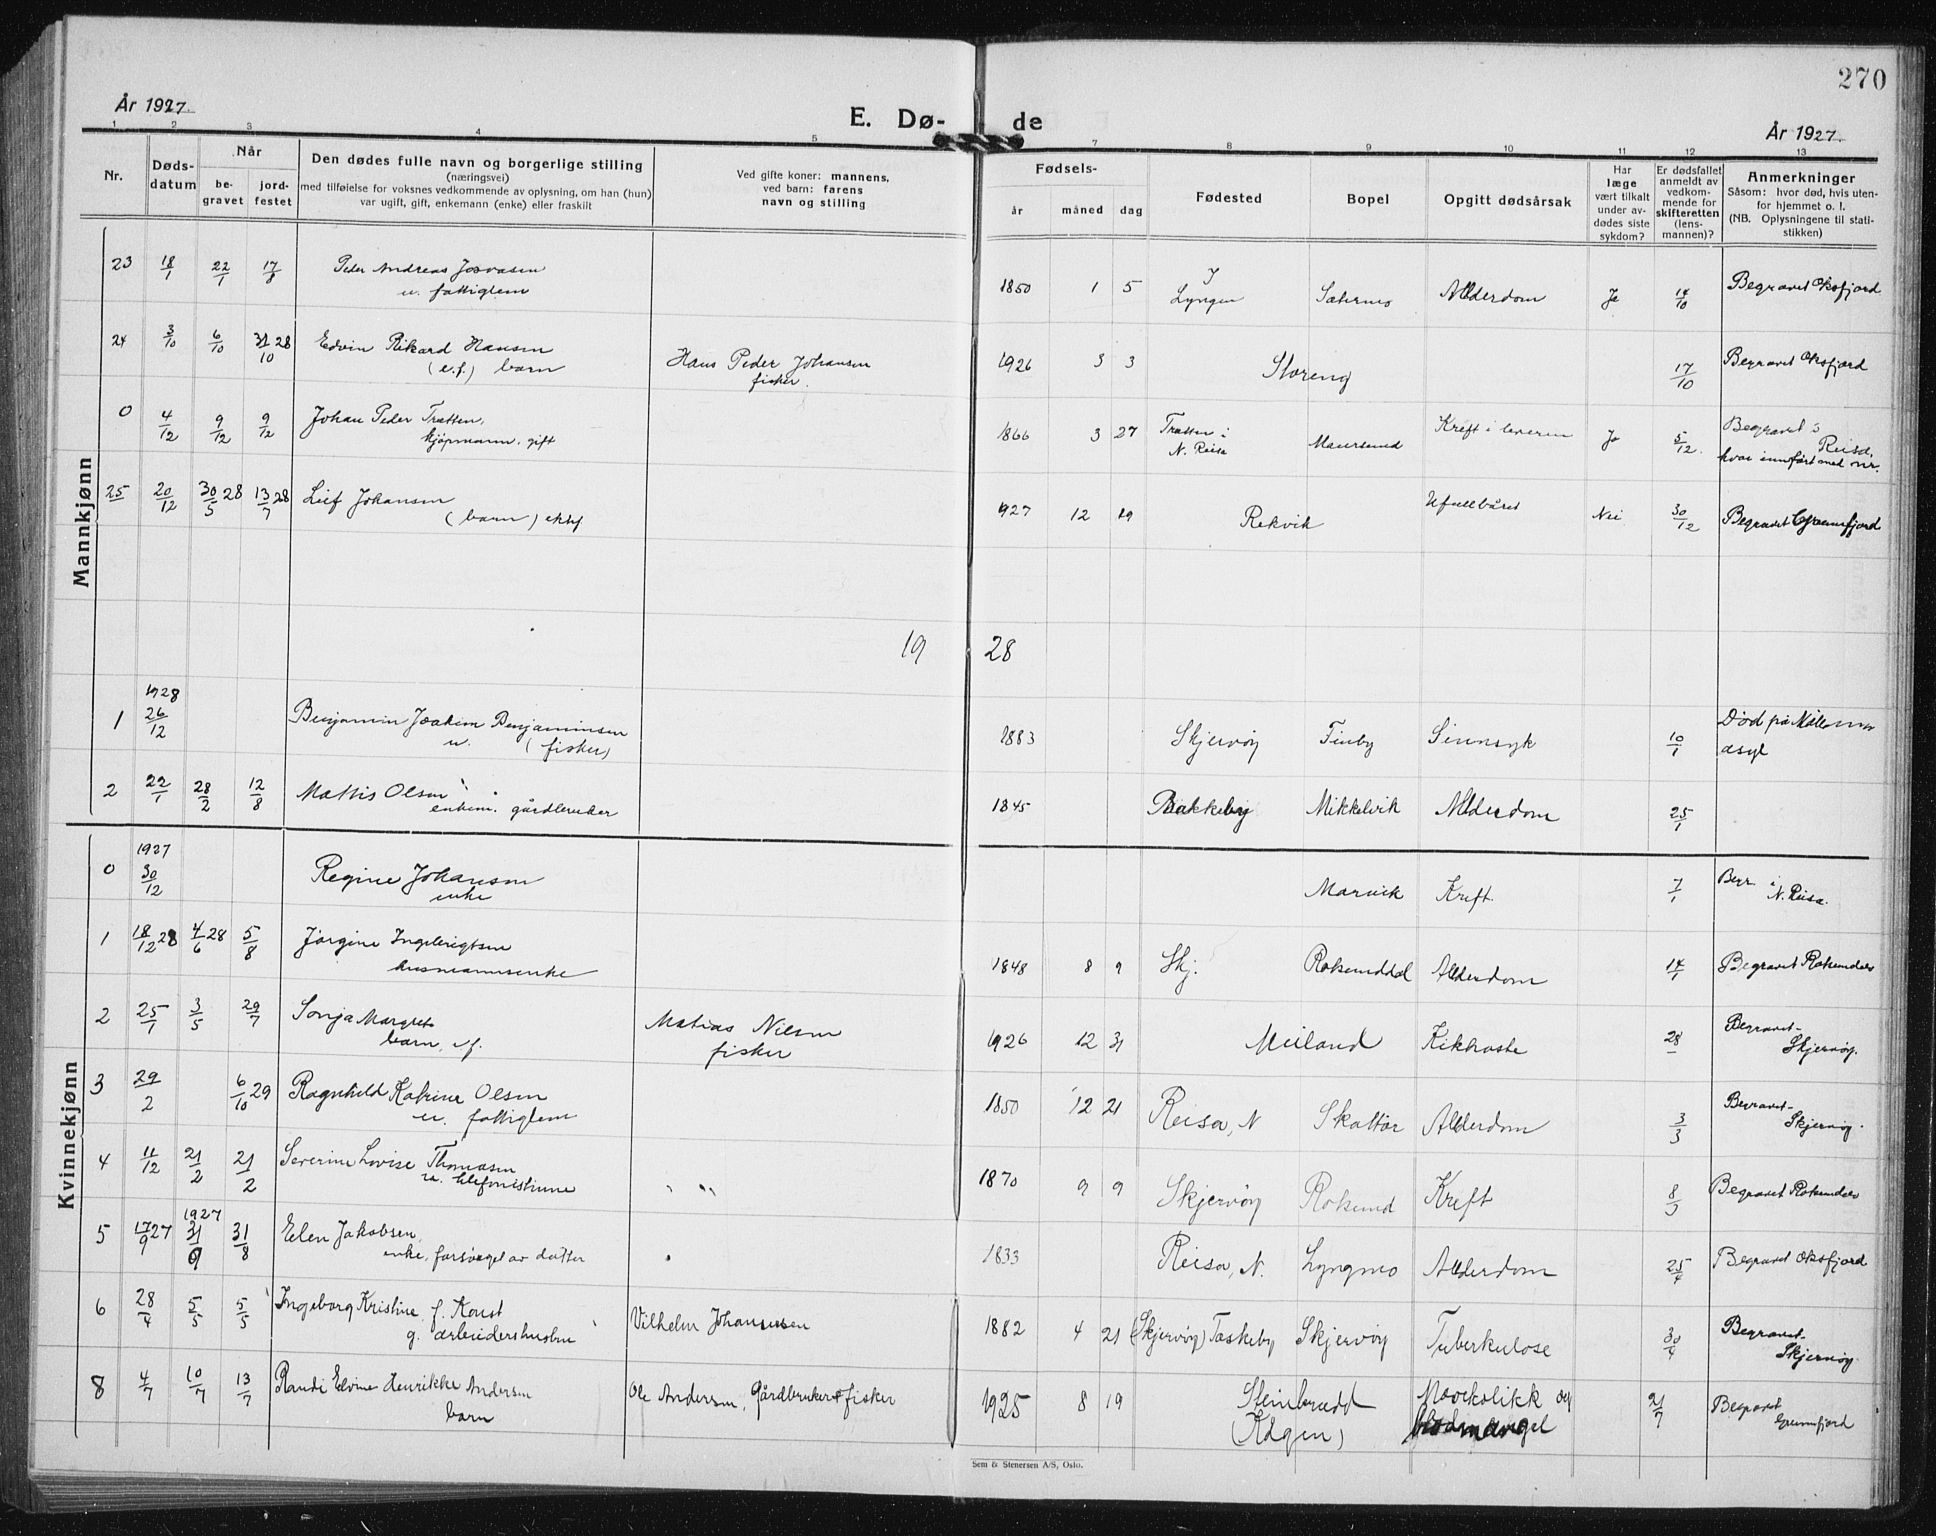 270
År 1927.
E. Dø-
de
År 1927.
1 2 3 4 5 7 8 9 10 11 12 13
Nr.
Døds-
datum
Når
be-
gravet
jord-
festet
Den dødes fulle navn og borgerlige stilling
(næringsvei)
med tilføielse for voksnes vedkommende av oplysning, om han (hun)
var ugift, gift, enkemann (enke) eller fraskilt
Ved gifte koner: mannens,
ved barn: farens
navn og stilling
Fødsels-
år måned dag
Fødested
Bopel
Opgitt dødsårsak
Har
læge
vært tilkalt
under av-
dødes siste
sykdom?
Er dødsfallet
anmeldt av
vedkom-
mende for
skifteretten
(lens-
mannen)?
Anmerkninger
Såsom: hvor død, hvis uten-
for hjemmet o. l.
(NB. Oplysningene til stati-
stikken)
Mannkjønn
23 18/1 22/1 17/8 Peder Andreas Josvasen 1850 1 5 Lyngen Alderdom Ja 14/10 Begravet Oksfjord
u. fattiglem
24 3/10 6/10 31/10 28 Edvin Rikard Hansen Hans Peder Johansen 1926 3 3 Storeng 17/10 Begravet Oksfjord
(e.f.) barn fisker.
0 4/12 9/12 9/12 Johan Peder Trætten, 1866 3 27 Trætten i Maursund Kreft i leveren Ja 5/12. Begravet i
kjøpmann, gift N. Reisa Reisa,
hvor innført med nr.
25 20/12 30/5 28 13/7 28 Leif Johansen 1927 12 19 Rekvik Ufullbåret Nei 30/12 Begravet Grunnfjord
(barn) ektef
19 28
1 1928 26/12 Benjamin Joakim Benjaminsen 1883 Skjervøy Finby Sinnsyk 10/1 Død på
u. (fisker) asyl
2 22/1 28/2 12/8 Mattis Olsen 1845 Bakkeby Mikkelvik Alderdom 25/1
enkem. gårdbruker
Kvinnekjønn
0 1927 30/12 Regine Johansen Marvik Kreft. 7/1 Begr. i
enke N. Reisa.
1 18/12 28 4/6 28 5/8 Jørgine Ingebrigtsen 1848 8 9 Skj. Rotsunddal Alderdom 14/1 Begravet Rotsundels
husmannsenke
2 25/1 3/5 29/7 Sonja Margret Matias Nilsen 1926 12 31 Meiland Kikhoste 28 Begravet
barn, e.f. fisker Skjervøy.
3 29/2 6/10 29 Ragnhild Katrine Olsen 1850 12 21 Reisa, N Skattør Alderdom 3/3 Begravet
u. fattiglem Skjervøy.
4 11/12 21/2 21/2 Severine Lovise Thomasen 1870 9 9 Skjervøy Rotsund Kreft 8/3 Begravet Rotsundels
u. telefonistinne
5 17/9 27 1927 31/9 31/8 Elen Jakobsen, 1833 Reisa, N. Lyngmo Alderdom 25/4 Begravet Oksfjord
enke, forsørget av datter
6 28/4 5/5 5/5 Ingeborg Kristine f. Koust Vilhelm Johansen 1882 4 21 (Skjervøy) Taskeby Skjervøy Tuberkulose 30/4 Begravet
g. arbeidershustru Skjervøy.
8 4/7 10/7 13/7 Randi Elvine Henrikke Andersen Ole Andersen, gårdbruker + fisker 1925 8 19 Steinbrudd Mavekolikk og 21/7 Begravet
barn (Kågen) blodmangel Grunnfjord
Sem & Stenersen A/S, Oslo.